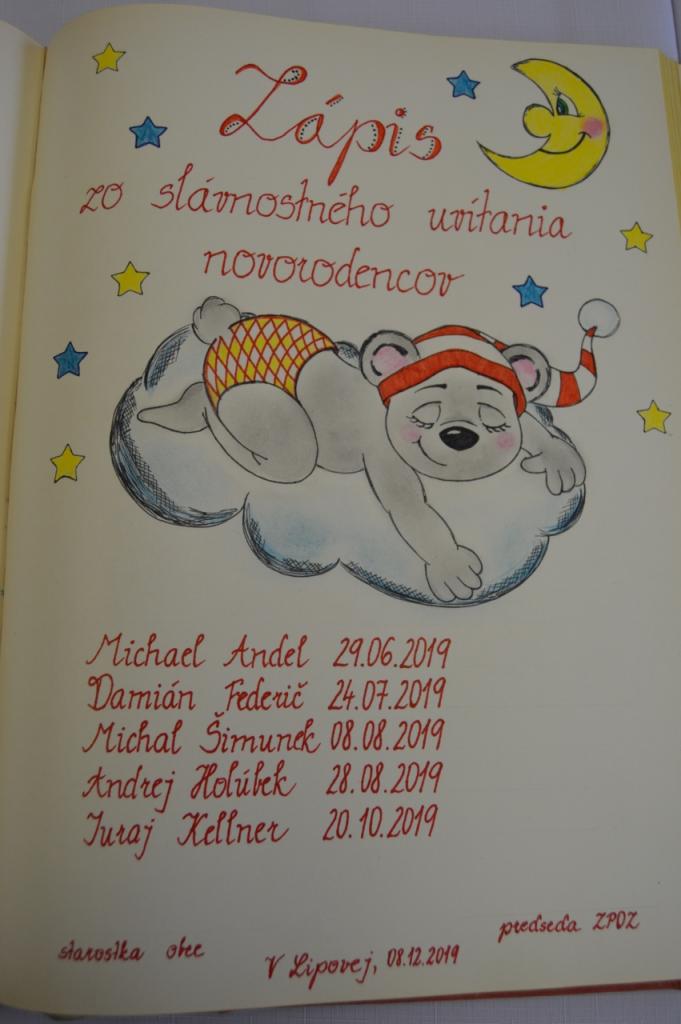 Zápis
zo slávnostného uvítania
novorodencov
Michael Andel 29.06.2019
Damián Federič 24.07.2019
Michal Šimunek 08.08.2019
Andrej Holúbek 28.08.2019
Juraj Kellner 20.10.2019
starostka obec
V Lipovej, 08.12.2019
predseda ZPOZ